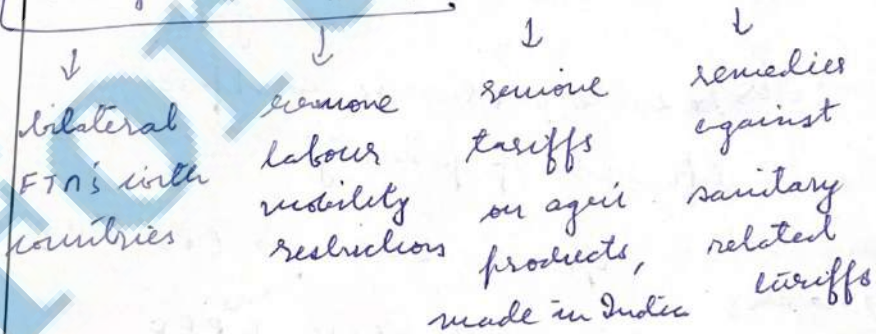 bilateral
FTA's with
countries
remove
labour
mobility
restrictions
remove
tariffs
on agri
products,
made in India
remedies
against
sanitary
related
tariffs